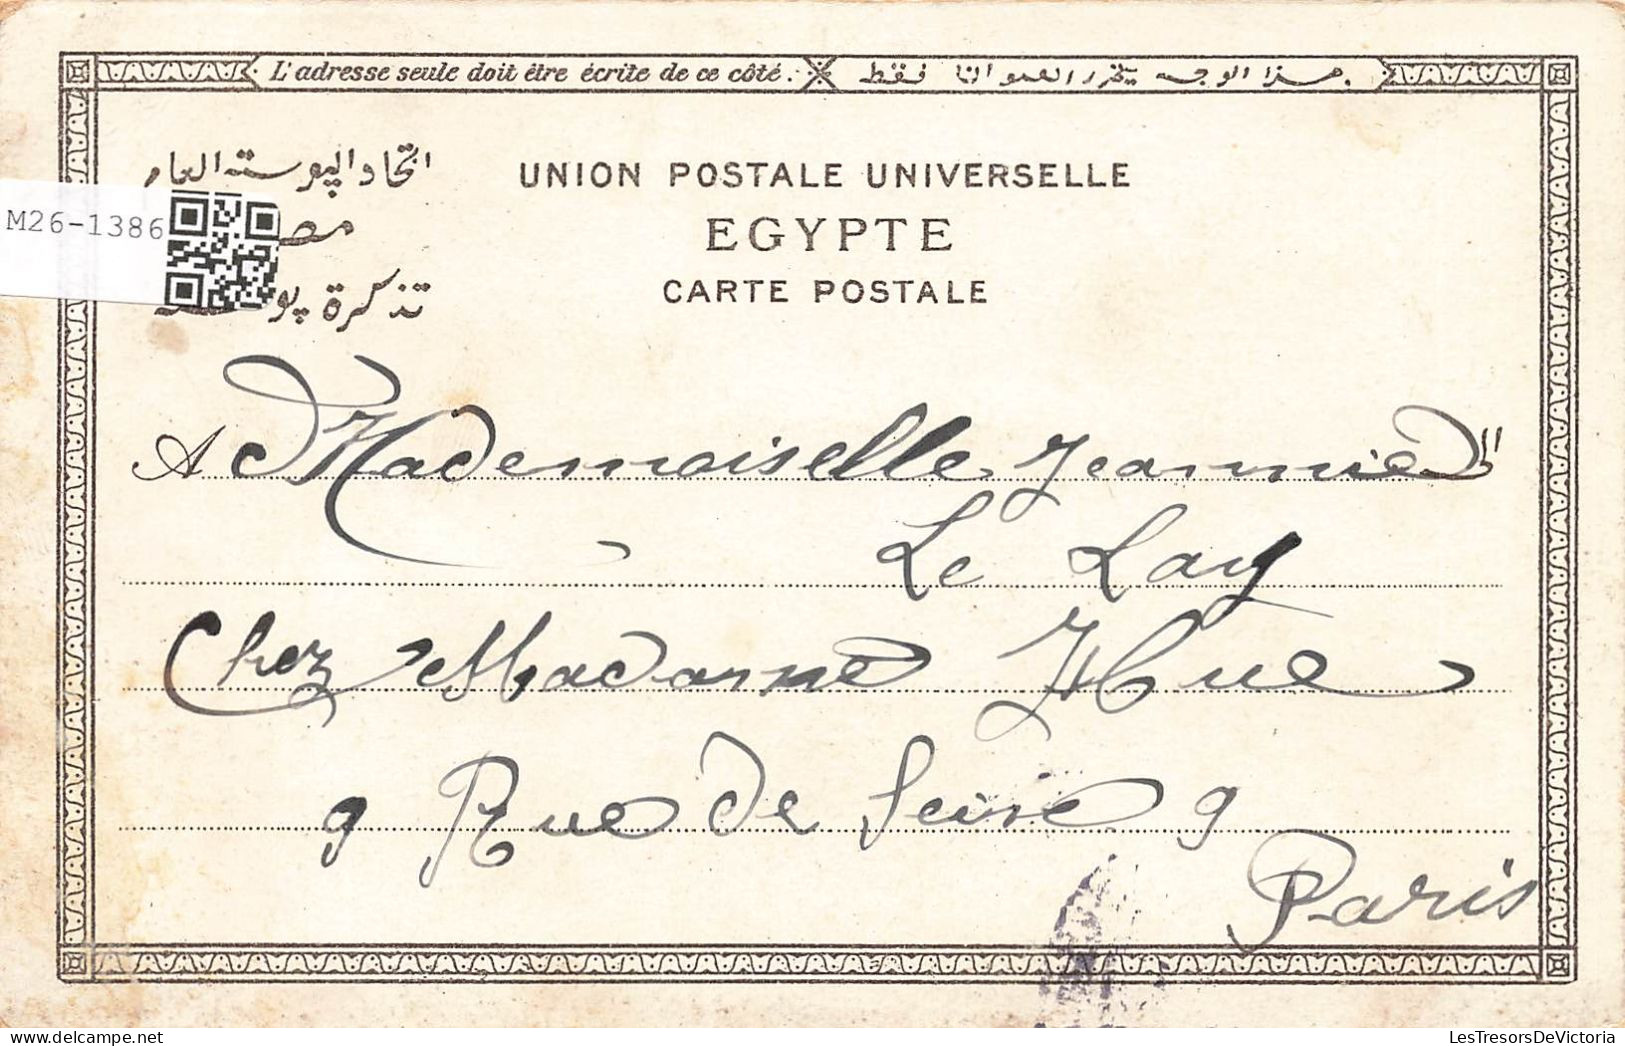 L'adresse seule doit être écrite de ce côté.
هذا الوجه يتحرر العنوانا فقط.
اتحاد الپوسته العام
UNION POSTALE UNIVERSELLE
M26-1386
EGYPTE
CARTE POSTALE
تذكرة
A Mademoiselle Jeannie
Le Lay
Chez Madame Hue
9 Rue de Seine 9
Paris
LesTresorsDeVictoria